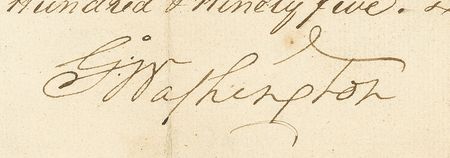 Hundred & Ninety five.
G:Washington